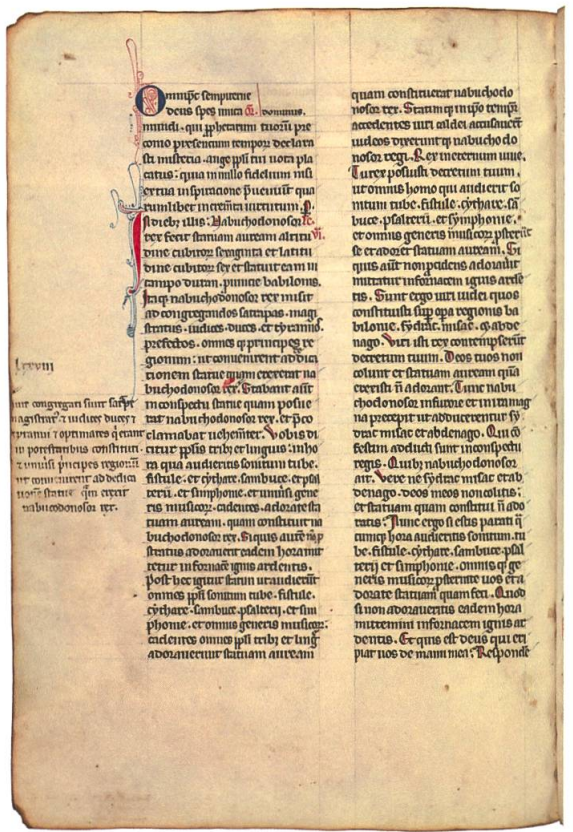 Omnipc sempiterne
deus spes unica or. dominus.
mundi. qui pphetarum tuorum pre
conio presentium temporum declara
sti misteria. auge ppli tui uota pla
catus: quia in nullo fidelium nisi
ex tua inspiratione pueniunt qua
rumlibet incrementa uirtutum. P.
In diebus illis: Nabuchodonosor
rex fecit statuam auream altitu
dine cubitorum sexaginta et latitu
dine cubitorum sex et statuit eam in
campo duram. puincie babilonis.
Itaq nabuchodonosor rex misit
ad congregandos satrapas. magi
stratus. iudices. duces. et tyrannos.
prefectos. omnes q principes re
gionum: ut conuenirent ad dedi
cationem statue quam erexerat na
buchodonosor rex. Stabant aut
in conspectu statue quam posue
rat nabuchodonosor rex. et pco
clamabat uehementer. Vobis di
citur pplis tribubus et linguis: in ho
ra qua audieritis sonitum tube.
fistule. et cythare. sambuce. et psal
terii. et simphonie. et uniuersi gene
ris musicorum. cadentes. adorate sta
tuam auream. quam constituit na
buchodonosor rex. Siquis autem non p
stratus adorauerit eadem hora mit
tetur in fornacem ignis ardentis.
Post hec igitur statim ut audierunt
omnes ppli sonitum tube. fistule.
cythare. sambuce. psalterii. et sim
phonie. et omnis generis musicorum:
cadentes omnes ppli tribus et ling
adorauerunt statuam auream
lxxviii
tunc congregati sunt satrape
magistratus et iudices duces et
tyranni et optimates qui erant
in potestatibus constituti
et uniuersi principes regionum
ut conuenirent ad dedica
tionem statue quam erexerat
nabucodonosor rex.
quam constituerat nabuchodo
nosor rex. Statimq in ipo tempore
accedentes uiri caldei accusauerunt
iudeos dixeruntq nabuchodo
nosor regi. Rex in eternum uiue.
Tu rex posuisti decretum tuum.
ut omnis homo qui audierit so
nitum tube. fistule. cythare. sa
buce. psalterii. et symphonie.
et omnis generis musicorum psternat
se et adoret statuam auream. Si
quis aut non pcidens adorauerit
mittatur in fornacem ignis arden
tis. Sunt ergo uiri iudei quos
constituisti super opera regionis ba
bilonie. sydrac. misac. et abde
nago. Viri isti rex contempserunt
decretum tuum. Deos tuos non
colunt et statuam auream quam
erexisti non adorant. Tunc nabu
chodonosor in furore et in ira mag
na precepit ut adducerentur sy
drac misac et abdenago. Qui con
festim adducti sunt in conspectu
regis. Quibus nabuchodonosor
ait. Vere ne sydrac misac et ab
denago. deos meos non colitis:
et statuam quam constitui non ado
ratis: Nunc ergo si estis parati q
cumq hora audieritis sonitum. tu
be. fistule. cythare. sambuce. psal
terii et simphonie. omnis q ge
neris musicorum psternite uos et a
dorate statuam quam feci. Quod
si non adoraueritis eadem hora
mittemini in fornacem ignis ar
dentis. Et quis est deus qui eri
piat uos de manu mea: Responden